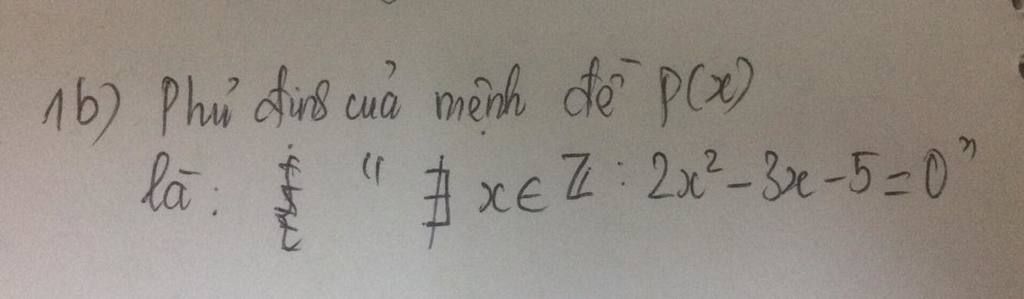 1b) Phủ định của mệnh đề P(x)
là: " ∄ x ∈ ℤ : 2x² - 3x - 5 = 0 "